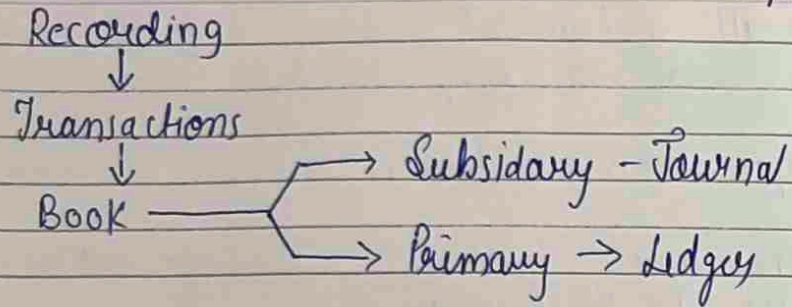 Recording
↓
Transactions
↓
Book → Subsidary - Journal
→ Primary → Ledger